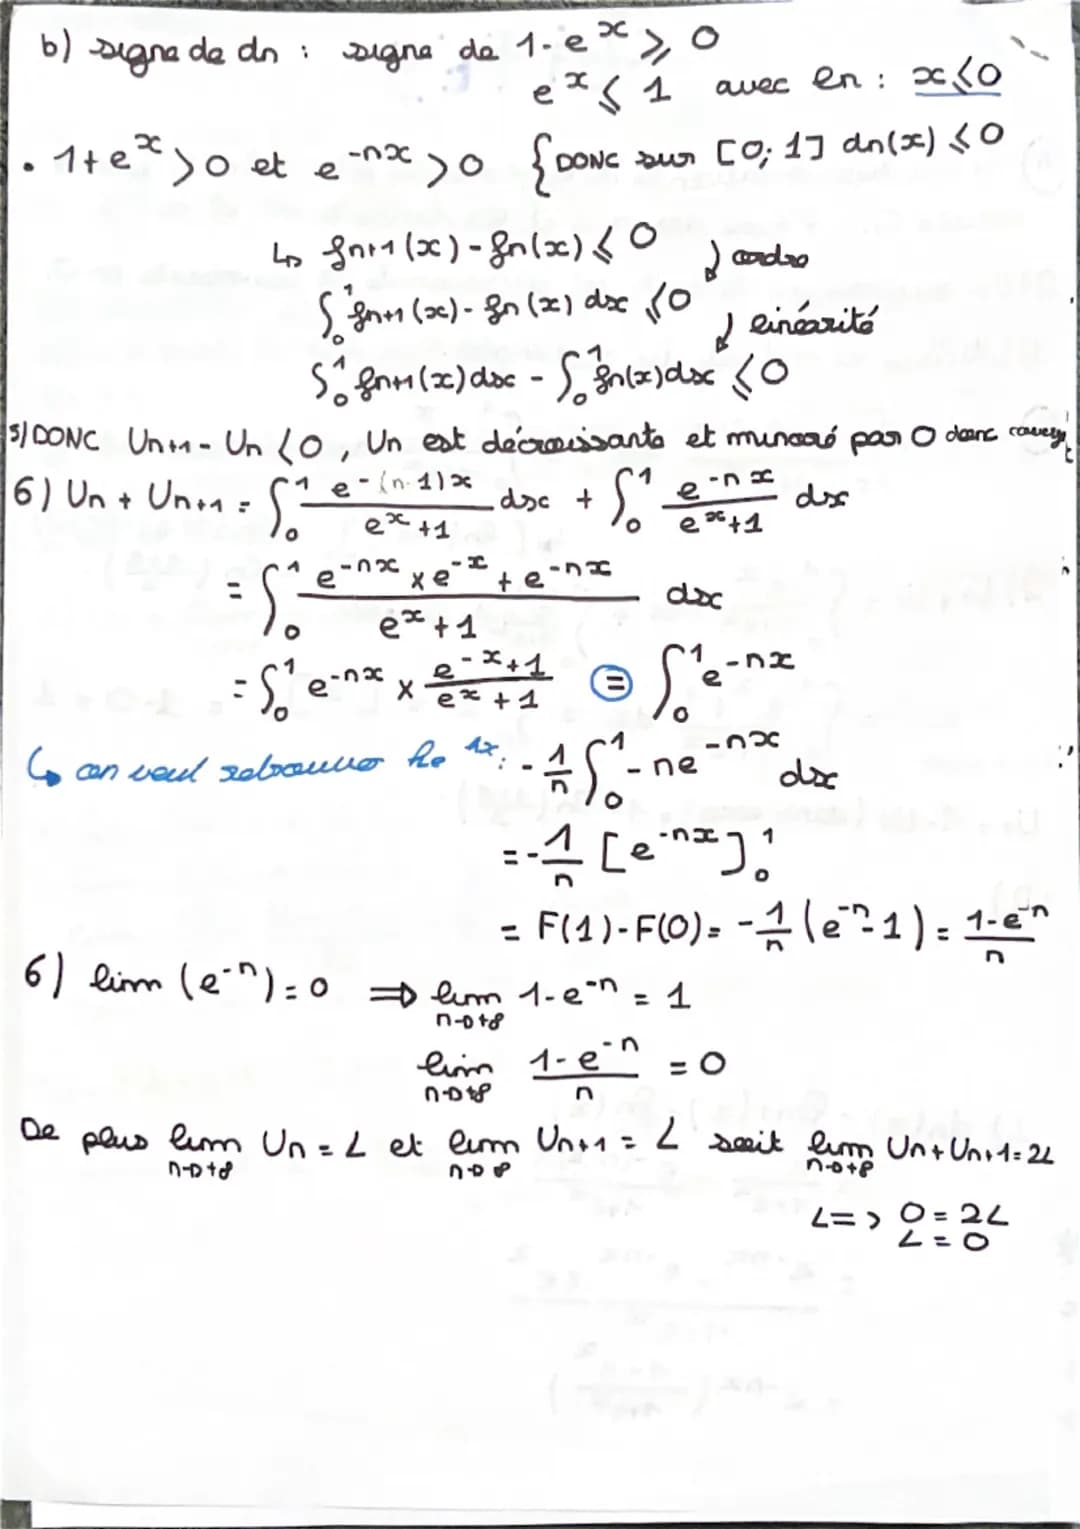 b) signe de dn : signe de 1-eˣ ⩾ 0
eˣ ⩽ 1 avec ln : x⩽0
• 1+eˣ >0 et e⁻ⁿˣ >0 { DONC sur [0; 1] dn(x) ⩽0
↳ fn+1 (x) - fn(x) ⩽ 0 ) ordre
∫₀¹ fn+1 (x) - fn (x) dx ⩽0 ) linéarité
∫₀¹ fn+1(x) dx - ∫₀¹ fn(x)dx ⩽0
5) DONC Un+1 - Un <0, Un est décroissante et minoré par 0 donc
6) Un + Un+1 = ∫₀¹ e^{-(n-1)x}/(eˣ+1) dx + ∫₀¹ e^{-nx}/(eˣ+1) dx
= ∫₀¹ (e^{-nx} × e^{-x} + e^{-nx})/(eˣ+1) dx
= ∫₀¹ e^{-nx} × (e^{-x}+1)/(eˣ+1) = ∫₀¹ e^{-nx}
↳ on veut : -1/n ∫₀¹ -ne^{-nx} dx
= -1/n [e^{-nx}]₀¹
= F(1)-F(0) = -1/n (e⁻ⁿ-1) = (1-e⁻ⁿ)/n
6) lim (e⁻ⁿ) = 0 ⇒ lim n→+∞ 1-e⁻ⁿ = 1
lim n→+∞ (1-e⁻ⁿ)/n = 0
De plus lim n→+∞ Un = L et lim n→∞ Un+1 = L soit lim n→+∞ Un+Un+1=2L
<=> 0 = 2L
L = 0